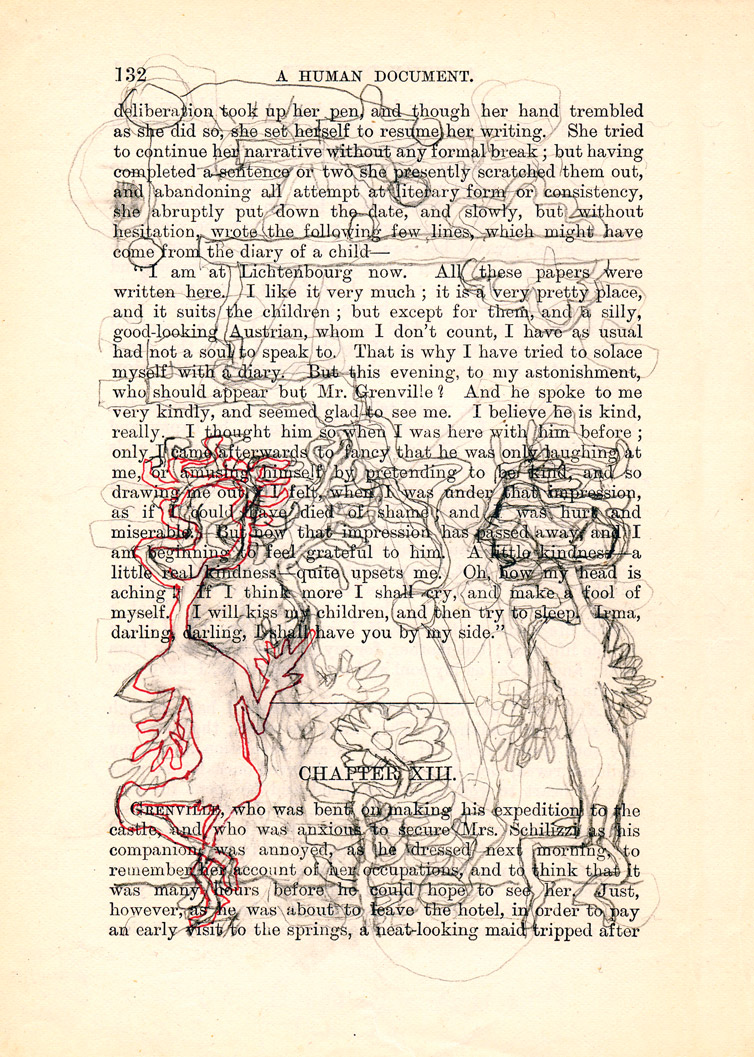 132
A HUMAN DOCUMENT.
deliberation took up her pen, and though her hand trembled
as she did so, she set herself to resume her writing. She tried
to continue her narrative without any formal break; but having
completed a sentence or two she presently scratched them out,
and abandoning all attempt at literary form or consistency,
she abruptly put down the date, and slowly, but without
hesitation, wrote the following few lines, which might have
come from the diary of a child—
"I am at Lichtenbourg now. All these papers were
written here. I like it very much; it is a very pretty place,
and it suits the children; but except for them, and a silly,
good-looking Austrian, whom I don't count, I have as usual
had not a soul to speak to. That is why I have tried to solace
myself with a diary. But this evening, to my astonishment,
who should appear but Mr. Grenville? And he spoke to me
very kindly, and seemed glad to see me. I believe he is kind,
really. I thought him so when I was here with him before;
only I came afterwards to fancy that he was only laughing at
me, or amusing himself by pretending to be kind, and so
drawing me out. I felt, when I was under that impression,
as if I could have died of shame; and I was hurt and
miserable. But now that impression has passed away, and I
am beginning to feel grateful to him. A little kindness—a
little real kindness—quite upsets me. Oh, how my head is
aching! If I think more I shall cry, and make a fool of
myself. I will kiss my children, and then try to sleep. Irma,
darling, darling, I shall have you by my side."
CHAPTER XIII.
GRENVILLE, who was bent on making his expedition to the
castle, and who was anxious to secure Mrs. Schilizzi as his
companion, was annoyed, as he dressed next morning, to
remember her account of her occupations, and to think that it
was many hours before he could hope to see her. Just,
however, as he was about to leave the hotel, in order to pay
an early visit to the springs, a neat-looking maid tripped after